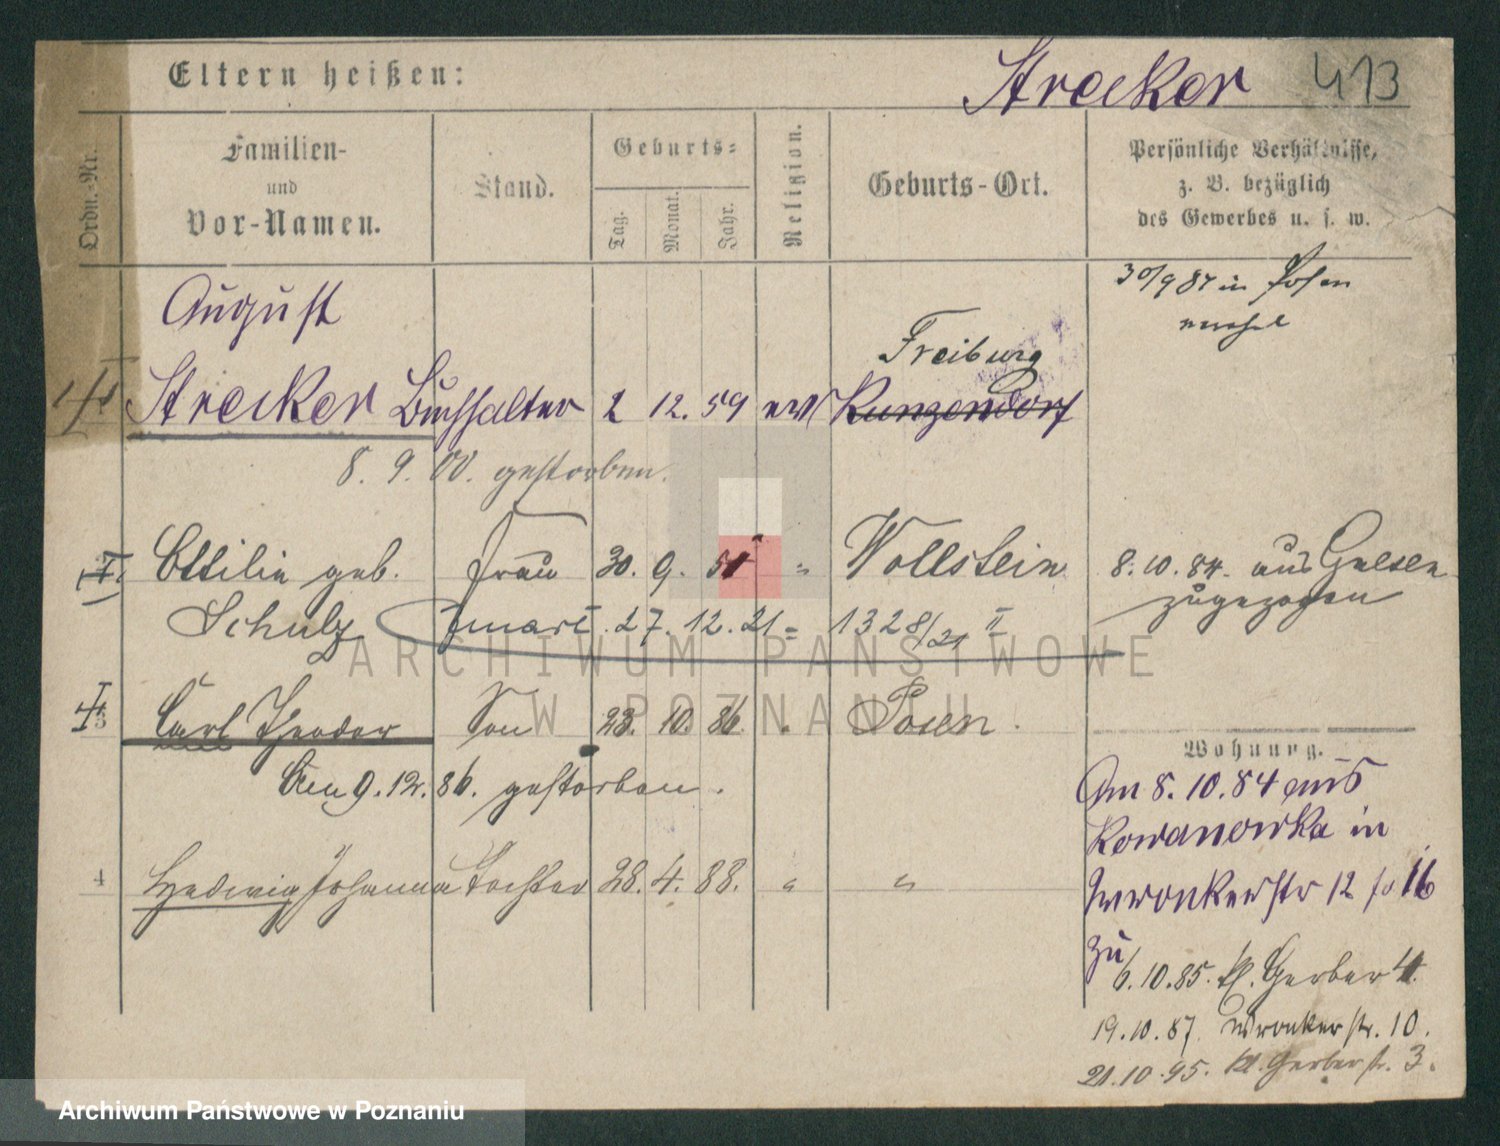 Eltern heißen:
Strecker 413
Ordn.-Nr.
Familien-
und
Vor-Namen.
Stand.
Geburts-
Tag.
Monat.
Jahr.
Religion.
Geburts-Ort.
Persönliche Verhältnisse,
z. B. bezüglich
des Gewerbes u. s. w.
30/9 87 in Posen
August
Freiburg
Strecker Buchhalter 2 12. 59 ev Kunzendorf
8. 9. 00. gestorben.
Ottilie geb. Frau 30. 9. 51 " Wollstein 8. 10. 84. aus
Schulz 27. 12. 21 = 1328/21 II zugezogen
3 Carl Theodor Son 23. 10. 86. " Posen.
Am 9. 12. 86. gestorben.
4 Hedwig Johanna Tochter 28. 4. 88. " "
Wohnung.
Am 8. 10. 84 aus
Kowanowka in
Wronkerstr 12 16
zu
6. 10. 85. kl. Gerber 4.
19. 10. 87. Wronkerstr. 10.
21. 10. 95. kl. Gerberstr. 3.
ARCHIWUM PAŃSTWOWE
W POZNANIU
Archiwum Państwowe w Poznaniu